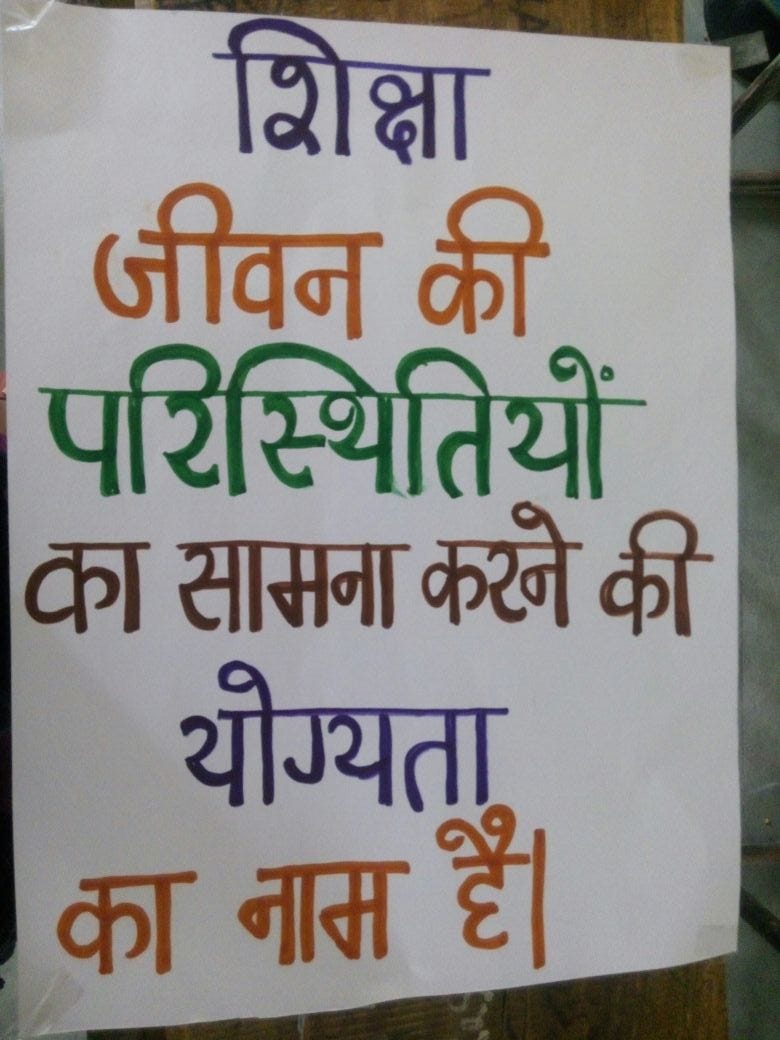 शिक्षा
जीवन की
परिस्थितियों
का सामना करने की
योग्यता
का नाम है।